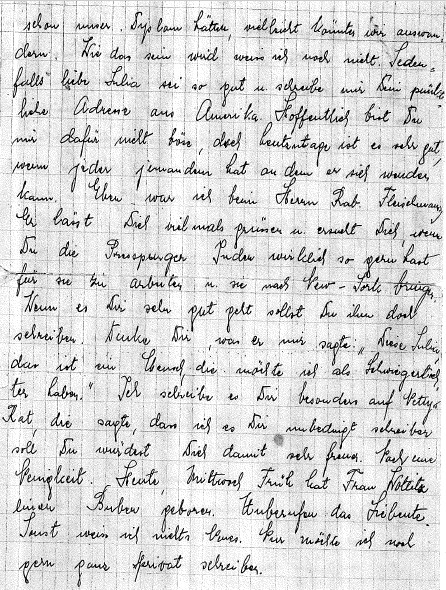 schon unser Dyplom hätten, vielleicht könnten wir auswan
dern. Wie das sein wird weiss ich noch nicht. Jeden-
falls liebe Julia sei so gut u. schreibe mir Dein pünkt-
liche Adresse aus Amerika. Hoffentlich bist Du
mir dafür nicht böse, doch heutzutage ist es sehr gut,
wenn jeder jemandem hat an dem er sich wenden
kann. Eben war ich beim Herrn Rab.
Er lässt Dich vielmals grüssen u. ersucht Dich, wenn
Du die Pressburger Juden wirklich so gern hast
für sie zu arbeiten u. sie nach New-York bringen.
Wenn es Dir sehr gut geht sollst Du ihm doch
schreiben. Denke Dir, was er mir sagte: „Diese Julia,
das ist ein Mensch, die möchte ich als Schwiegertoch
ter haben." Ich schreibe es Dir besonders auf
Rat die sagte, dass ich es Dir unbedingt schreiben
soll Du würdest Dich damit sehr freuen. Noch eine
Neuigkeit. Heute, Mittwoch Früh hat Frau
einen Buben geboren. Unberufen das Siebente.
Sonst weiss ich nichts Neues. Nur möchte ich noch
gern ganz Privat schreiben.